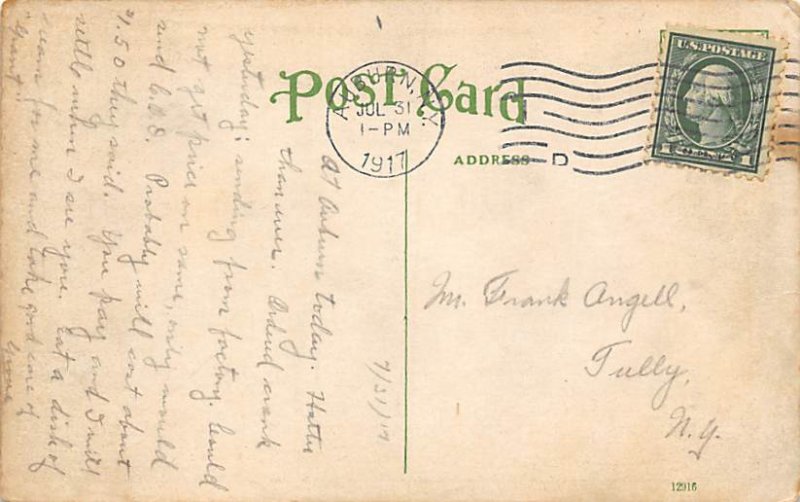 Post Card
AUBURN, N.Y.
JUL 31
1-PM
1917
U.S. POSTAGE
1 CENT 1
ADDRESS
D
7/31/17
At Auburn today. Hotter
than ever. Ordered crank
yesterday; sending from factory. Could
not get price on same, only would
send C.O.D. Probably will cost about
4.50 they said. You pay and I will
settle when I see you. Eat a dish of
cream for me and take good care of
"Grant".
Mr. Frank Angell,
Tully,
N.Y.
12916